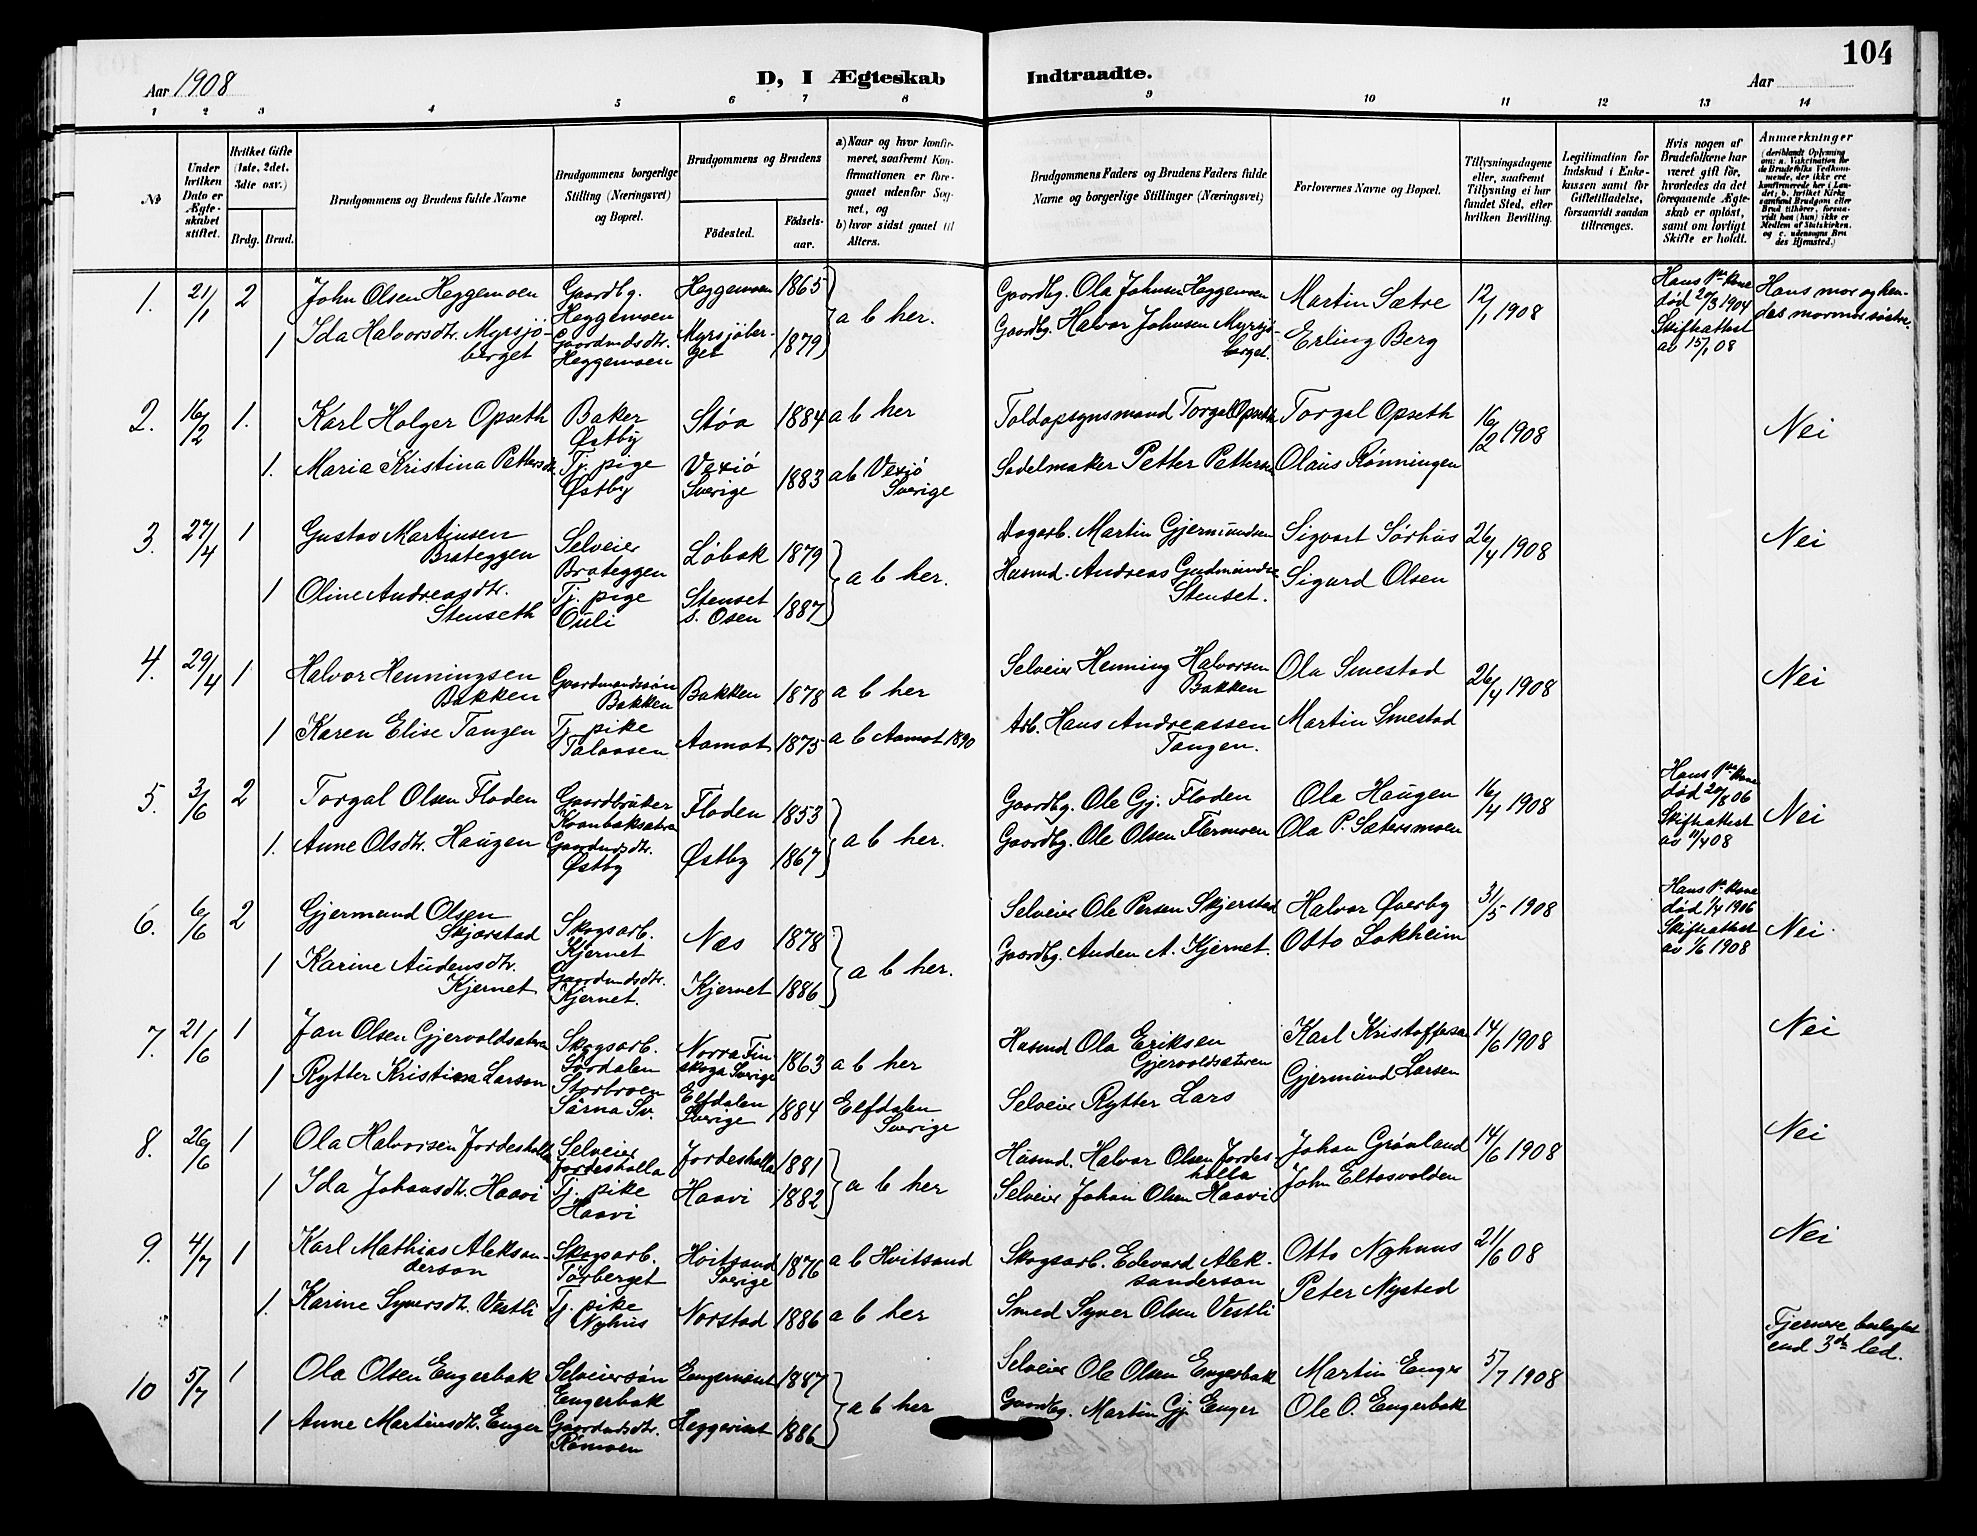 104
Aar 1908
D, I Ægteskab Indtraadte.
Aar
1 2 3 4 5 6 7 8 9 10 11 12 13 14
№
Under hvilken Dato er Ægteskabet stiftet.
Hvilket Gifte (1ste, 2det, 3die osv.)
Brdg. Brud.
Brudgommens og Brudens fulde Navne
Brudgommens borgerlige Stilling (Næringsvei) og Bopæl.
Brudgommens og Brudens
Födested.
Födselsaar.
a) Naar og hvor konfirmeret, saafremt Konfirmationen er foregaaet udenfor Sognet, og
b) hvor sidst gaaet til Alters.
Brudgommens Faders og Brudens Faders fulde Navne og borgerlige Stillinger (Næringsvei)
Forlovernes Navne og Bopæl.
Tillysningsdagene eller, saafremt Tillysning ei har fundet Sted, efter hvilken Bevilling.
Legitimation for Indskud i Enkekassen samt for Giftetilladelse, forsaavidt saadan tiltrænges.
Hvis nogen af Brudefolkene har været gift för, hvorledes da det foregaaende Ægteskab er oplöst, samt om lovligt Skifte er holdt.
Anmærkninger
(deriblandt Oplysning om: a. Vakcination for de Brudefolks Vedkommende, der ikke ere konfirmerede her i Landet; b. hvilket Kirkesamfund Brudgom eller Brud tilhörer, forsaavidt han (hun) ikke er Medlem af Statskirken, og c. udensogns Brudes Hjemsted.)
1. 21/1 2 John Olsen Heggemoen Gaardbg. Heggemoen Heggemoen 1865
1 Ida Halvorsdtr. Myrsjöberget Gaardmdsdtr. Heggemoen Myrsjöberget 1879
a b her.
Gaardbg. Ola Johnsen Heggemoen
Gaardbg. Halvor Johnsen Myrsjöberget.
Martin Sætre
Erling Berg
12/1 1908
Hans 1ste kone död 20/3 1904
Skifteattest av 15/1 08
Hans mor og hendes mormor söstre.
2. 16/2 1. Karl Holger Opseth Baker Østby Støa 1884 a b her
1. Maria Kristina Pettersdtr. Tj. pige Østby Vexiö Sverige 1883 a b Vexiö Sverige
Toldopsynsmand Torgal Opseth
Sadelmaker Petter Petterson
Torgal Opseth
Olaus Rönningen
16/2 1908
Nei
3. 27/4 1 Gustav Martinsen Brateggen Selveier Brateggen Löbak 1879
1 Oline Andreasdtr. Stenseth Tj. pige Ouli Stenset s. Osen 1887
a b her.
Dagarb. Martin Gjermundsen
Husmd. Andreas Gudmundsen Stenset.
Sigvart Sörhus
Sigurd Olsen
26/4 1908
Nei
4. 29/4 1 Halvor Henningsen Bakken Gaardmandssön Bakken Bakken 1878 a b her
1 Karen Elise Tangen Tj. pike Talaasen Aamot 1875 a b Aamot 1890
Selveier Henning Halvorsen Bakken
Arb. Hans Andreassen Tangen.
Ola Smestad
Martin Smestad
26/4 1908
Nei
5. 3/6 2 Torgal Olsen Floden Gaardbruker Floden 1853
1. Anne Olsdtr. Haugen Gaardmdsdtr. Østby Østby 1867
a b her.
Gaardbg. Ole Gj. Floden
Gaardbg. Ole Olsen Flermoen
Ola Haugen
Ola P. Sætersmoen
16/4 1908
Hans 1ste kone död 20/8 06
Skifteattest av 11/4 08
Nei
6. 6/6 2 Gjermund Olsen Skjærstad Skogsarb. Kjernet Næs 1878
1 Karine Audensdtr. Kjernet Gaardmdsdtr. Kjernet. Kjernet 1886
a b her.
Selveier Ole Persen Skjerstad
Gaardbg. Auden A. Kjernet.
Halvor Øverby
Otto Lokheim
31/5 1908
Hans 1ste kone död 1/4 1906
Skifteattest av 1/6 1908
Nei.
7. 21/6 1 Jan Olsen Gjervoldsæteren Skogsarb. Sördalen Norra Finskoga Sverige 1863 a b her
1 Rytter Kristina Larson Storbroen Särna Sv. Elfdalen Sverige 1884 Elfdalen Sverige
Husmd Ola Eriksen Gjervoldsæteren
Selveier Rytter Lars
Karl Kristoffersen
Gjermund Larsen
14/6 1908
Nei
8. 26/6 1 Ola Halvorsen Jordeskolla Selveier Jordeskolla Jordeskolla 1881
1 Ida Johansdtr. Haavi Tj. pike Haavi Haavi 1882
a b her
Husmd. Halvor Olsen Jordeskolla
Selveier Johan Olsen Haavi
Johan Grönland
John Eltasvolden
14/6 1908
Nei
9. 4/7 1 Karl Mathias Aleksanderson Skogsarb. Törberget Hvitsand Sverige 1876 a b Hvitsand
1. Karine Synersdtr. Vestli Tj. pike Nyhus Norstad 1886 a b her
Skogsarb. Edvard Aleksanderson
Smed Syner Olsen Vestli
Otto Nyhuus
Peter Nysted
21/6 08
Nei
10 5/7 1 Ola Olsen Engerbak Selveiersön Engerbak 1887
1 Anne Martinsdtr. Enger Gaardmdsdtr. Römoen 1886
a b her
Selveier Ole Olsen Engerbak
Gaardbg. Martin Gj. Enger
Martin Enger
Ole O. Engerbak
5/7 1908
Fjernere beslegtet end 3de led.